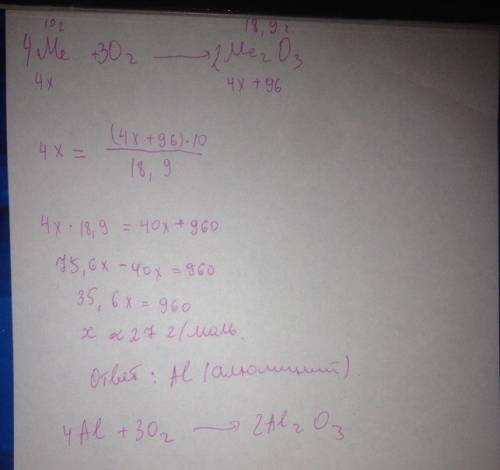 10г 18,9г
4Me + 3O₂ ⟶ 2Me₂O₃
4x 4x + 96
4x = (4x+96)·10 / 18,9
4x · 18,9 = 40x + 960
75,6x - 40x = 960
35,6x = 960
x ≈ 27 г/моль.
Ответ: Al (алюминий).
4Al + 3O₂ ⟶ 2Al₂O₃